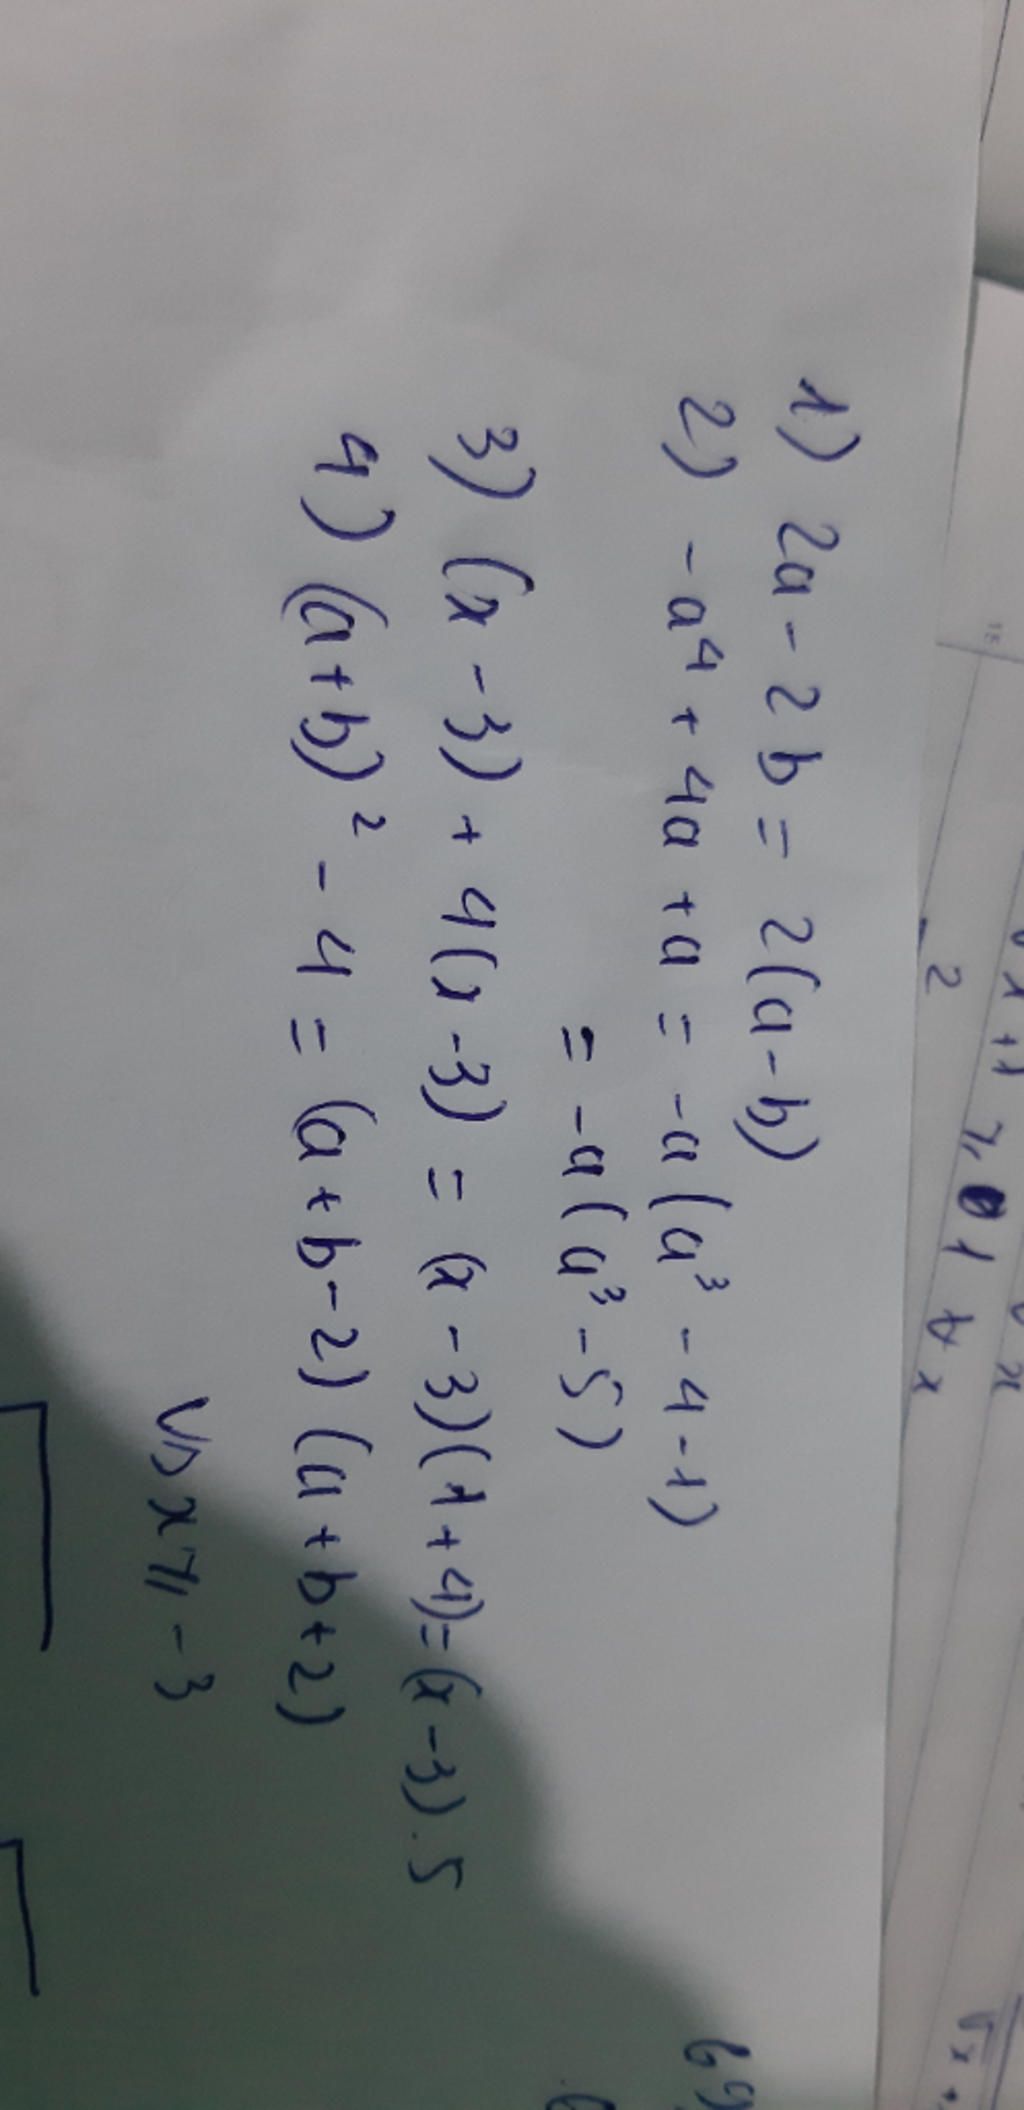 1) 2a - 2b = 2(a - b)
2) -a⁴ + 4a + a = -a(a³ - 4 - 1)
= -a(a³ - 5)
3) (x - 3) + 4(x - 3) = (x - 3)(1 + 4) = (x - 3).5
4) (a + b)² - 4 = (a + b - 2)(a + b + 2)
x ⩾ -3
x + 1 ⩾ 1 ∀ x
2
x
√x